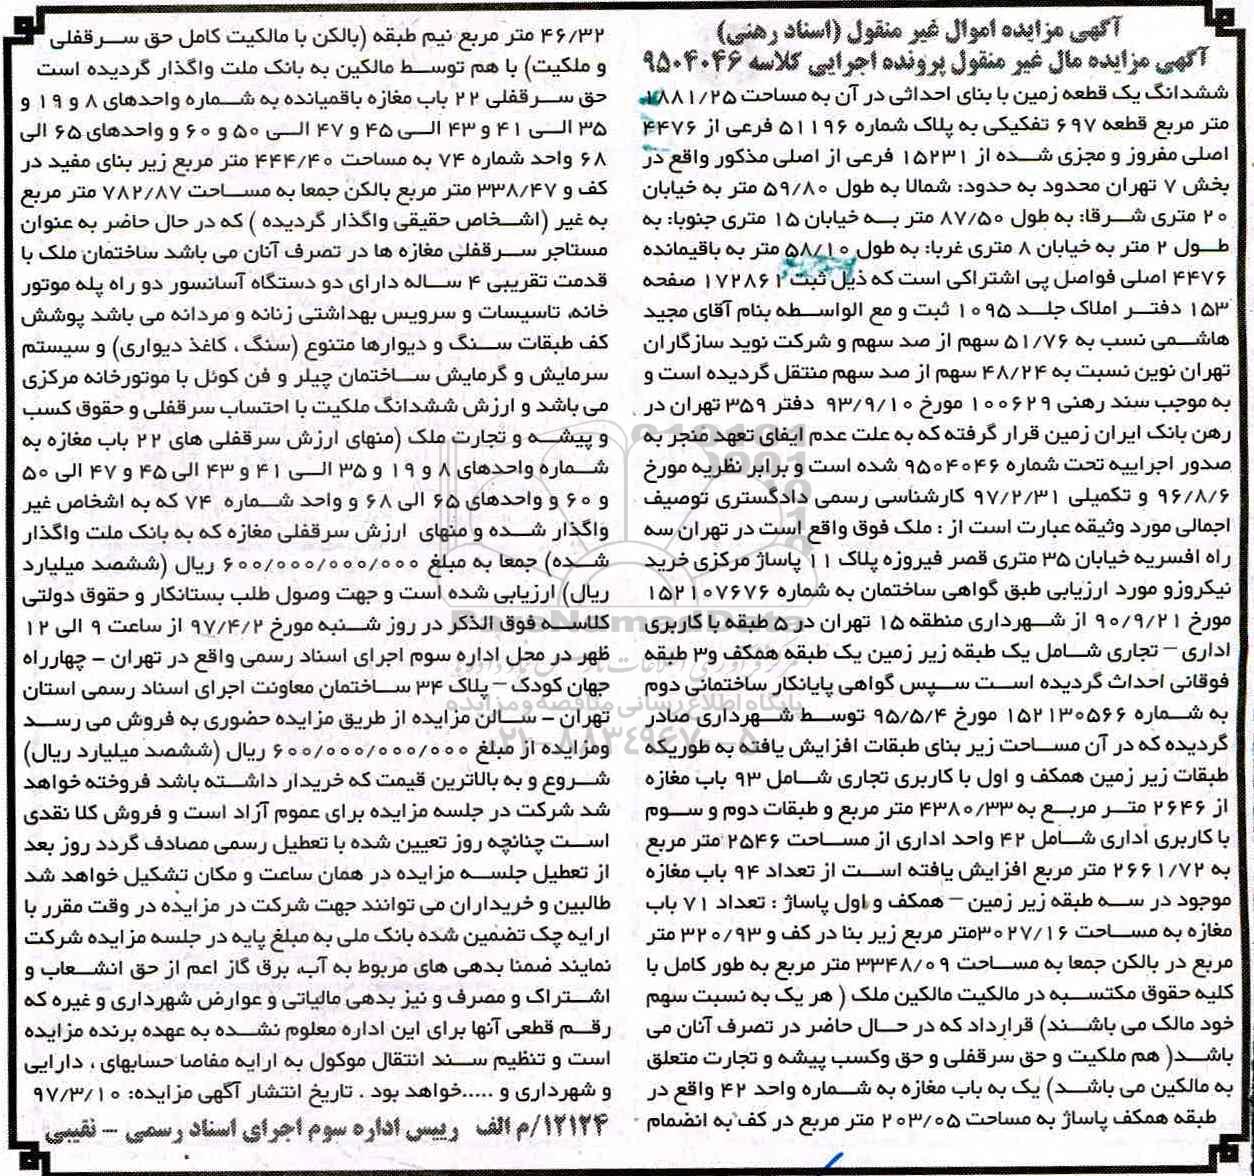 آگهی مزایده اموال غیر منقول (اسناد رهنی)
آگهی مزایده مال غیر منقول پرونده اجرایی کلاسه ۹۵۰۴۰۴۶
ششدانگ یک قطعه زمین با بنای احداثی در آن به مساحت ۱۸۸۱/۲۵
متر مربع قطعه ۶۹۷ تفکیکی به پلاک شماره ۵۱۱۹۶ فرعی از ۴۴۷۶
اصلی مفروز و مجزی شده از ۱۵۲۳۱ فرعی از اصلی مذکور واقع در
بخش ۷ تهران محدود به حدود: شمالا به طول ۵۹/۸۰ متر به خیابان
۲۰ متری شرقا: به طول ۸۷/۵۰ متر به خیابان ۱۵ متری جنوبا: به
طول ۲ متر به خیابان ۸ متری غربا: به طول ۵۸/۱۰ متر به باقیمانده
۴۴۷۶ اصلی فواصل پی اشتراکی است که ذیل ثبت ۱۷۲۸۶۱ صفحه
۱۵۳ دفتر املاک جلد ۱۰۹۵ ثبت و مع الواسطه بنام آقای مجید
هاشمی نسب به ۵۱/۷۶ سهم از صد سهم و شرکت نوید سازگاران
تهران نوین نسبت به ۴۸/۲۴ سهم از صد سهم منتقل گردیده است و
به موجب سند رهنی ۱۰۰۶۲۹ مورخ ۹۳/۹/۱۰ دفتر ۳۵۹ تهران در
رهن بانک ایران زمین قرار گرفته که به علت عدم ایفای تعهد منجر به
صدور اجراییه تحت شماره ۹۵۰۴۰۴۶ شده است و برابر نظریه مورخ
۹۶/۸/۶ و تکمیلی ۹۷/۲/۳۱ کارشناسی رسمی دادگستری توصیف
اجمالی مورد وثیقه عبارت است از : ملک فوق واقع است در تهران سه
راه افسریه خیابان ۳۵ متری قصر فیروزه پلاک ۱۱ پاساژ مرکزی خرید
نیکروزو مورد ارزیابی طبق گواهی ساختمان به شماره ۱۵۲۱۰۷۶۷۶
مورخ ۹۰/۹/۲۱ از شهرداری منطقه ۱۵ تهران در ۵ طبقه با کاربری
اداری – تجاری شامل یک طبقه زیر زمین یک طبقه همکف و۳ طبقه
فوقانی احداث گردیده است سپس گواهی پایانکار ساختمانی دوم
به شماره ۱۵۲۱۳۰۵۶۶ مورخ ۹۵/۵/۴ توسط شهرداری صادر
گردیده که در آن مساحت زیر بنای طبقات افزایش یافته به طوریکه
طبقات زیر زمین همکف و اول با کاربری تجاری شامل ۹۳ باب مغازه
از ۲۶۴۶ متر مربع به ۴۳۸۰/۳۳ متر مربع و طبقات دوم و سوم
با کاربری اداری شامل ۴۲ واحد اداری از مساحت ۲۵۴۶ متر مربع
به ۲۶۶۱/۷۲ متر مربع افزایش یافته است از تعداد ۹۴ باب مغازه
موجود در سه طبقه زیر زمین – همکف و اول پاساژ : تعداد ۷۱ باب
مغازه به مساحت ۳۰۲۷/۱۶متر مربع زیر بنا در کف و ۳۲۰/۹۳ متر
مربع در بالکن جمعا به مساحت ۳۳۴۸/۰۹ متر مربع به طور کامل با
کلیه حقوق مکتسبه در مالکیت مالکین ملک ( هر یک به نسبت سهم
خود مالک می باشند) قرارداد که در حال حاضر در تصرف آنان می
باشد( هم ملکیت و حق سرقفلی و حق وکسب پیشه و تجارت متعلق
به مالکین می باشد) یک به باب مغازه به شماره واحد ۴۲ واقع در
طبقه همکف پاساژ به مساحت ۲۰۳/۰۵ متر مربع در کف به انضمام
۴۶/۳۲ متر مربع نیم طبقه (بالکن با مالکیت کامل حق سرقفلی
و ملکیت) با هم توسط مالکین به بانک ملت واگذار گردیده است
حق سرقفلی ۲۲ باب مغازه باقمیانده به شماره واحدهای ۸ و ۱۹ و
۳۵ الی ۴۱ و ۴۳ الی ۴۵ و ۴۷ الی ۵۰ و ۶۰ و واحدهای ۶۵ الی
۶۸ واحد شماره ۷۴ به مساحت ۴۴۴/۴۰ متر مربع زیر بنای مفید در
کف و ۳۳۸/۴۷ متر مربع بالکن جمعا به مساحت ۷۸۲/۸۷ متر مربع
به غیر (اشخاص حقیقی واگذار گردیده ) که در حال حاضر به عنوان
مستاجر سرقفلی مغازه ها در تصرف آنان می باشد ساختمان ملک با
قدمت تقریبی ۴ ساله دارای دو دستگاه آسانسور دو راه پله موتور
خانه، تاسیسات و سرویس بهداشتی زنانه و مردانه می باشد پوشش
کف طبقات سنگ و دیوارها متنوع (سنگ ، کاغذ دیواری) و سیستم
سرمایش و گرمایش ساختمان چیلر و فن کوئل با موتورخانه مرکزی
می باشد و ارزش ششدانگ ملکیت با احتساب سرقفلی و حقوق کسب
و پیشه و تجارت ملک (منهای ارزش سرقفلی های ۲۲ باب مغازه به
شماره واحدهای ۸ و ۱۹ و ۳۵ الی ۴۱ و ۴۳ الی ۴۵ و ۴۷ الی ۵۰
و ۶۰ و واحدهای ۶۵ الی ۶۸ و واحد شماره ۷۴ که به اشخاص غیر
واگذار شده و منهای ارزش سرقفلی مغازه که به بانک ملت واگذار
شده) جمعا به مبلغ ۶۰۰/۰۰۰/۰۰۰/۰۰۰ ریال (ششصد میلیارد
ریال) ارزیابی شده است و جهت وصول طلب بستانکار و حقوق دولتی
کلاسه فوق الذکر در روز شنبه مورخ ۹۷/۴/۲ از ساعت ۹ الی ۱۲
ظهر در محل اداره سوم اجرای اسناد رسمی واقع در تهران – چهارراه
جهان کودک – پلاک ۳۴ ساختمان معاونت اجرای اسناد رسمی استان
تهران – سالن مزایده از طریق مزایده حضوری به فروش می رسد
ومزایده از مبلغ ۶۰۰/۰۰۰/۰۰۰/۰۰۰ ریال (ششصد میلیارد ریال)
شروع و به بالاترین قیمت که خریدار داشته باشد فروخته خواهد
شد شرکت در جلسه مزایده برای عموم آزاد است و فروش کلا نقدی
است چنانچه روز تعیین شده با تعطیل رسمی مصادف گردد روز بعد
از تعطیل جلسه مزایده در همان ساعت و مکان تشکیل خواهد شد
طالبین و خریداران می توانند جهت شرکت در مزایده در وقت مقرر با
ارایه چک تضمین شده بانک ملی به مبلغ پایه در جلسه مزایده شرکت
نمایند ضمنا بدهی های مربوط به آب، برق گاز اعم از حق انشعاب و
اشتراک و مصرف و نیز بدهی مالیاتی و عوارض شهرداری و غیره که
رقم قطعی آنها برای این اداره معلوم نشده به عهده برنده مزایده
است و تنظیم سند انتقال موکول به ارایه مفاصا حسابهای ، دارایی
و شهرداری و .....خواهد بود . تاریخ انتشار آگهی مزایده: ۹۷/۳/۱۰
۱۲۱۲۴/م الف رییس اداره سوم اجرای اسناد رسمی – نقیبی
ParsNamadData
پایگاه اطلاع رسانی مناقصه و مزایده
۰۲۱-۸۸۳۴۹۶۷۰-۵